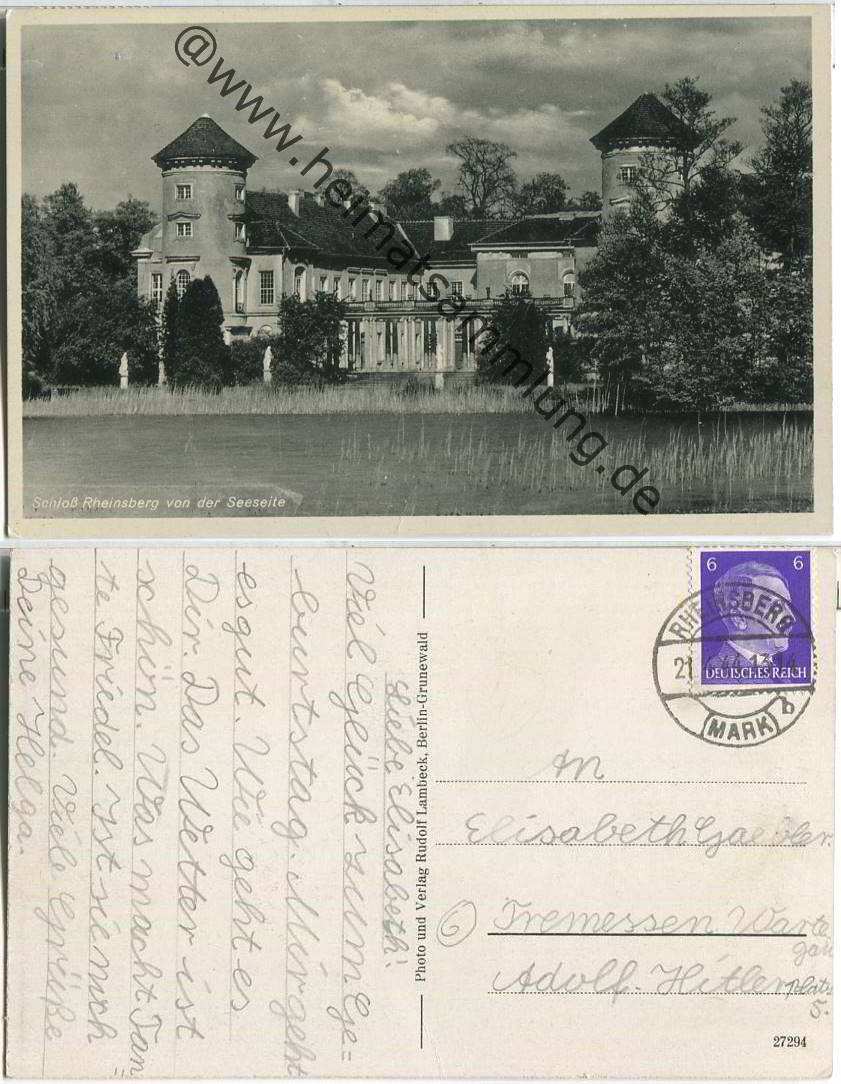 @www.heimatsammlung.de
Schloß Rheinsberg von der Seeseite
Liebe Elisabeth!
Viel Glück zum Ge=
burtstag. Mir geht
es gut. Wie geht es
Dir. Das Wetter ist
schön. Was macht Tan
te Friedel. Ist sie noch
gesund. Viele Grüße
Deine Helga.
Photo und Verlag Rudolf Lambeck, Berlin-Grunewald
6 6
DEUTSCHES REICH
RHEINSBERG
(MARK)
b
An
Elisabeth Gaebler.
6 Tremessen Warte
gau
Adolf-Hitler platz
5.
27294